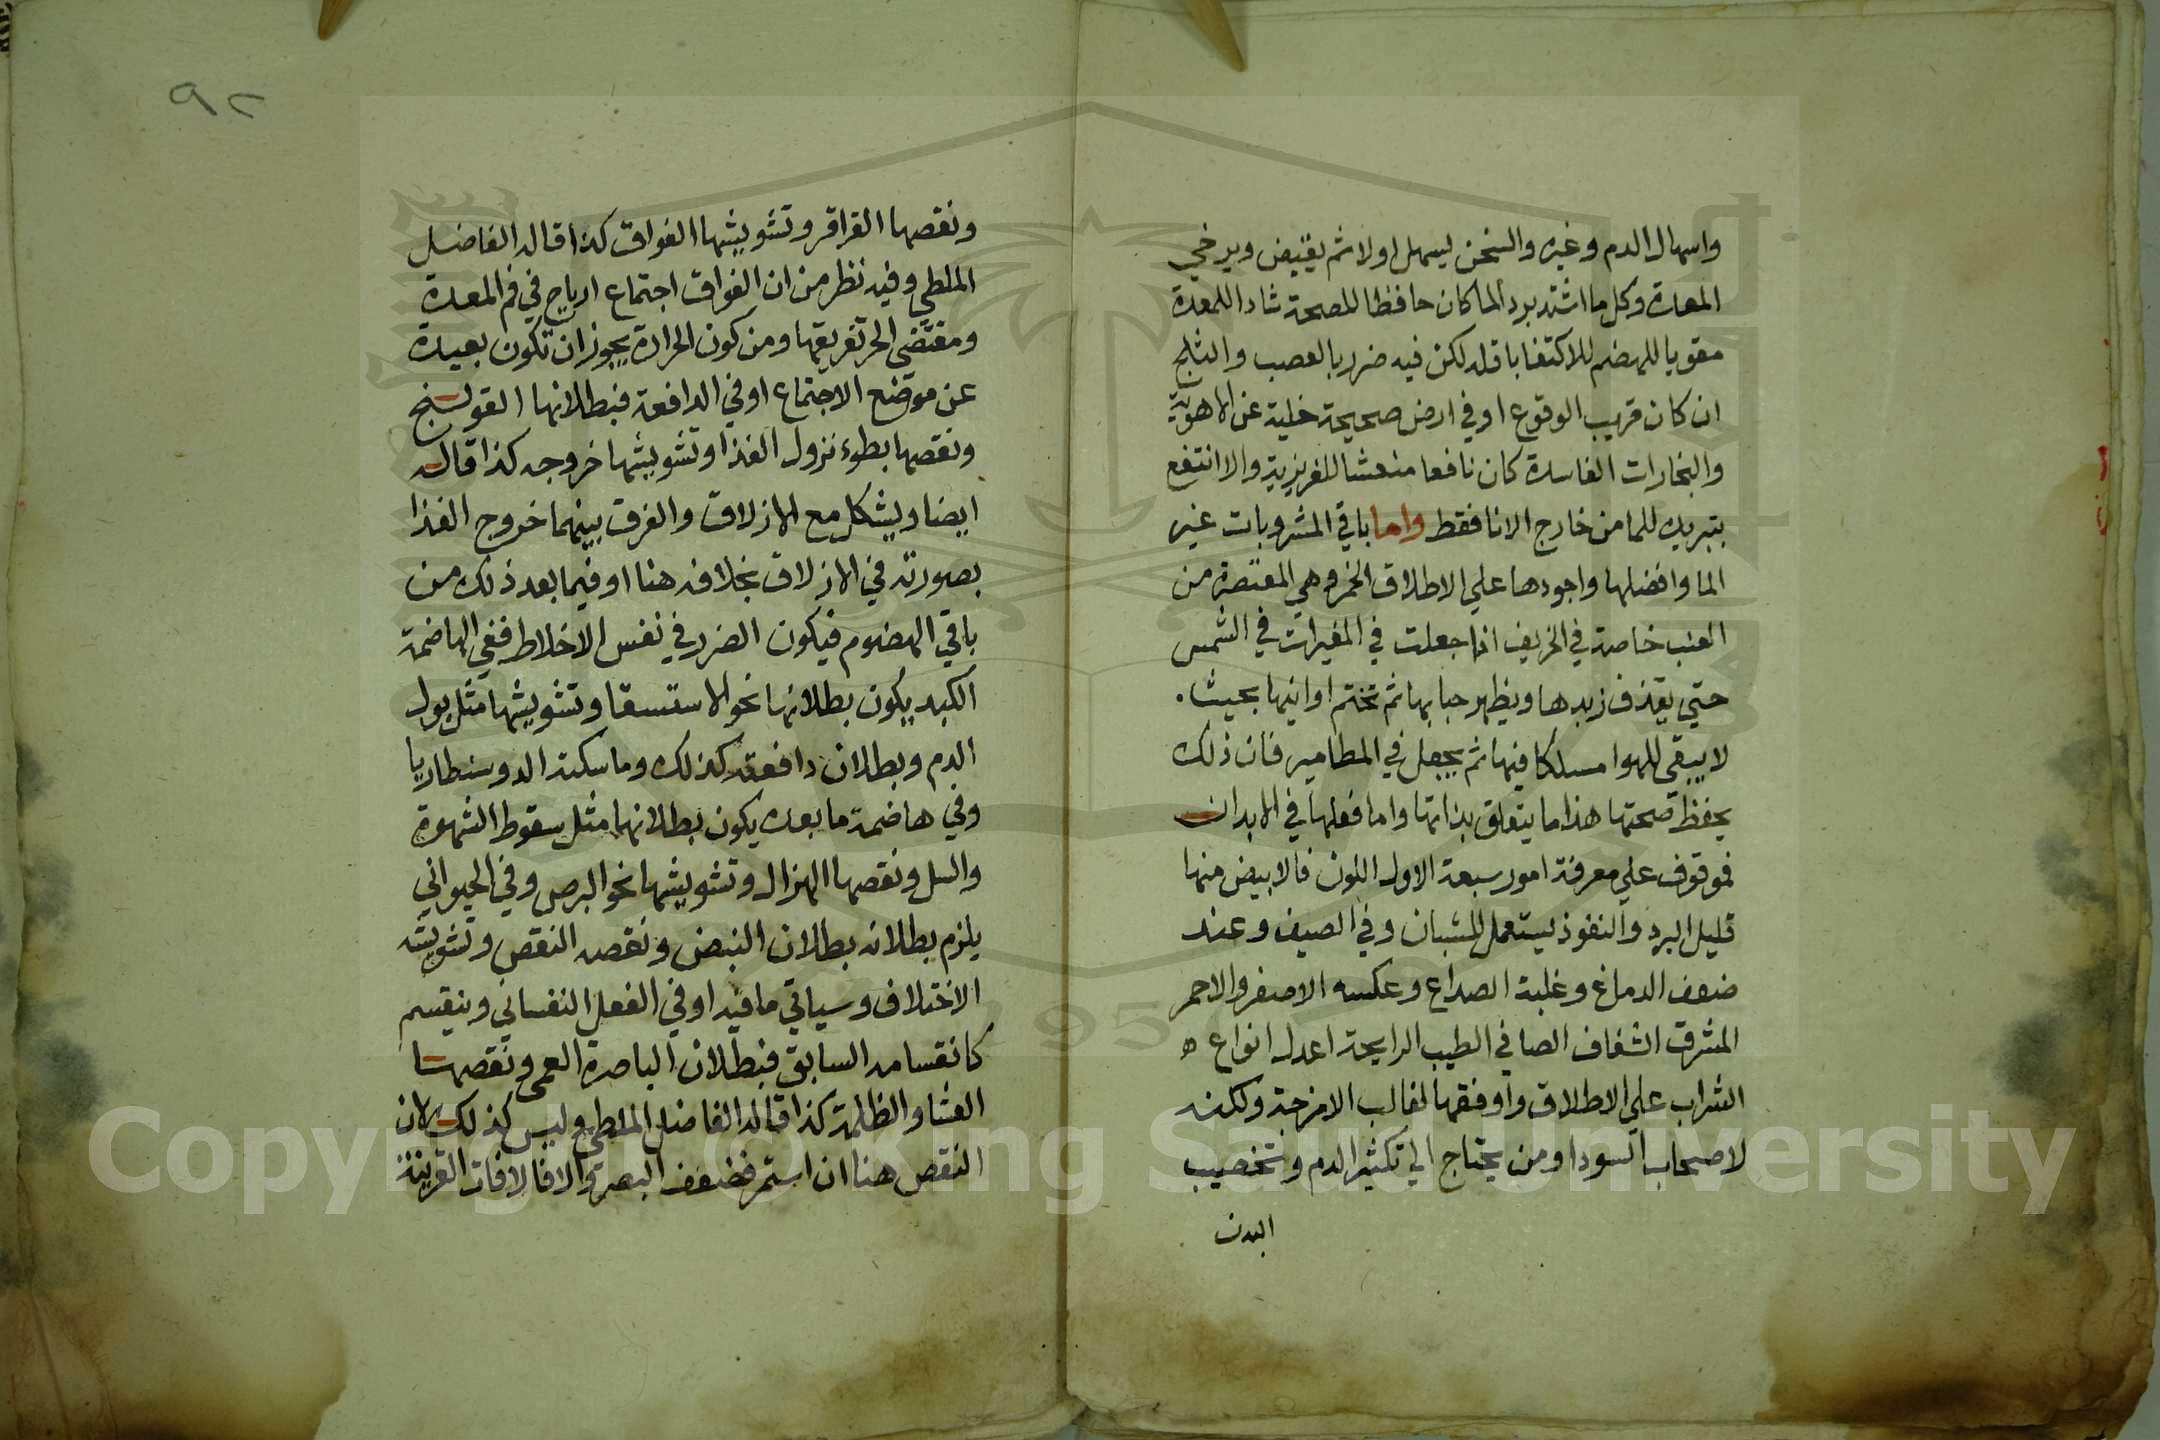 واسهال الدم وغيره والسخن يسهل اولا ثم يقبض ويرخي
المعدة وكل ما اشتد برد الماكان حافظا للصحة شاد اللمعدة
مقويا للهضم للاكتفا باقله لكن فيه ضرر بالعصب والثلج
ان كان قريب الوقوع او في ارض صحيحة خلية عن الاهوية
والبخارات الفاسدة كان نافعا منعشا للغريزية والا انتفع
بتبريده للما من خارج الانا فقط واما باقي المشروبات غير
الما وافضلها واجودها علي الاطلاق الخمر وهي المعتصرة من
العنب خاصة في الخريف اذا جعلت في المقيرات في الشمس
حتي يقذف زبدها ويظهر حبابها ثم تختم اوانيها بحيث
لا يبقي للهوا مسلكا فيها ثم يجعل في المطامير فان ذلك
يحفظ صحتها هذا ما يتعلق بذاتها واما فعلها في الابدان
فموقوف علي معرفة امور سبعة الاول اللون فالابيض منها
قليل البرد والنفوذ يستعمل للشبان وفي الصيف وعند
ضعف الدماغ وغلبة الصداع وعكسه الاصفر والاحمر
المشرق الشفاف الصافي الطيب الرايحة اعدل انواع ه
الشراب علي الاطلاق واوفقها لغالب الامزجة ولكنه
لاصحاب السودا ومن يحتاج الي تكثير الدم وتخصيب
البدن
٩٢
ونقصها القراقر وتشويشها الفواق كذا قاله الفاضل
الملطي وفيه نظر من ان الفواق اجتماع ارياح في فم المعدة
ومقتضي الحر تفريقها ومن كون الحرارة يجوز ان تكون بعيدة
عن موضع الاجتماع او في الدافعة فبطلانها القولنج
ونقصها بطوء نزول الغذا وتشويشها خروجه كذا قاله
ايضا ويشكل مع الازلاق والفرق بينهما خروج الغذا
بصورته في الازلاق بخلافه هنا او فيما بعد ذلك من
باقي الهضوم فيكون الضرر في نفس الاخلاط ففي الهاضمة
الكبد يكون بطلانها نحو الاستسقا وتشويشها مثل بول
الدم وبطلان دافعته كذلك وماسكته الدوسنطاريا
وفي هاضمة ما بعده يكون بطلانها مثل سقوط الشهوة
والسل ونقصها الهزال وتشويشها نحو البرص وفي الحيواني
يلزم بطلانه بطلان النبض ونقصه النقص وتشويشه
الاختلاف وسياتي ما فيه او في الفعل النفساني وينقسم
كانقسامه السابق فبطلان الباصرة العمي ونقصها
العشا والظلمة كذا قاله الفاضل الملطي وليس كذلك لان
النقص هنا ان استمر فضعف البصر والا فالافات القرينة
Copyright © King Saud University
1957